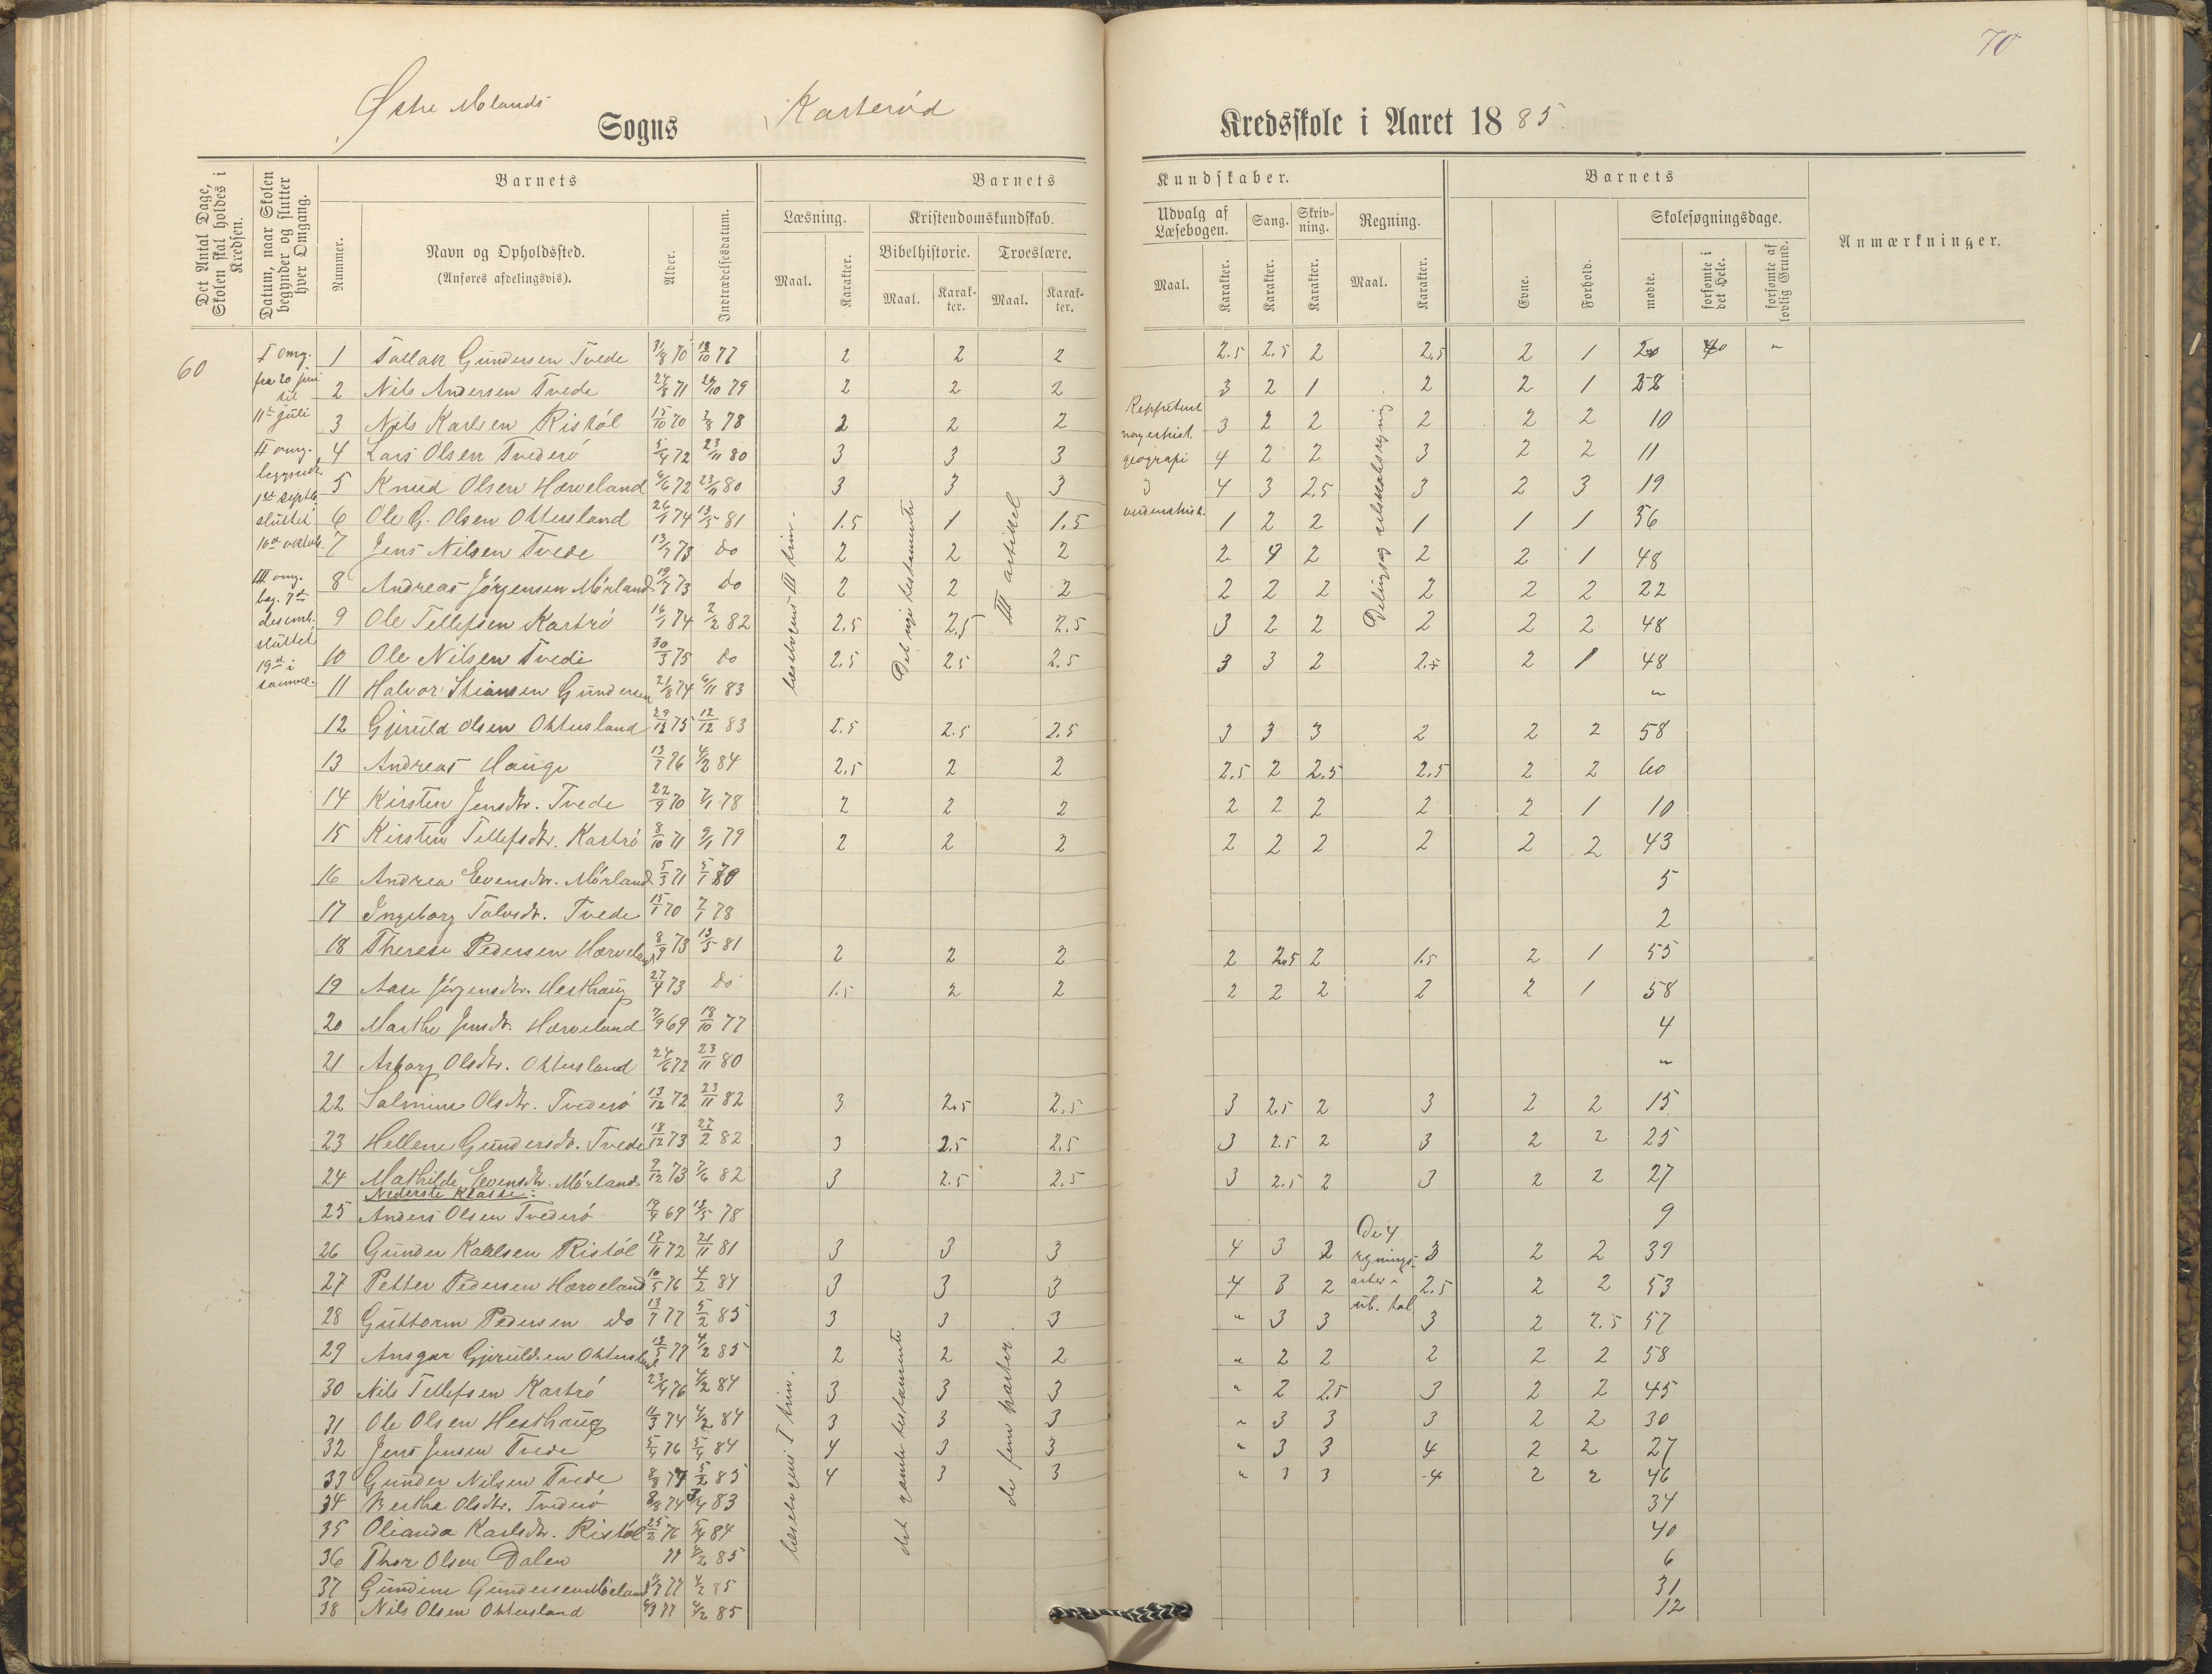 70
Østre Molands Sogns Kasterød Kredsskole i Aaret 1885.
Det Antal Dage, Skolen skal holdes i Kredsen.
Datum, naar Skolen begynder og slutter hver Omgang.
Barnets
Nummer.
Navn og Opholdssted.
(Anføres afdelingsvis).
Alder.
Indtrædelsesdatum.
Barnets Kundskaber.
Læsning.
Maal. Karakter.
Kristendomskundskab.
Bibelhistorie. Troeslære.
Maal. Karakter. Maal. Karakter.
Udvalg af Læsebogen.
Maal. Karakter.
Sang.
Karakter.
Skrivning.
Karakter.
Regning.
Maal. Karakter.
Barnets
Evne. Forhold.
Skolesøgningsdage.
mødte. forsømte i det Hele. forsømte af lovlig Grund.
Anmærkninger.
60
I omg.
fra 20 juni
til
11te juli
II omg.
begyndte
1ste septb.
sluttet
10de oktob.
III omg.
beg. 7de
desemb.
sluttet
19de i
samme.
læsebogens III trin.
Det nye testamente
III artikel
Reppetent
norgeshist.
geografi
verdenshist.
Delings og selskabsregning
1 Tallak Gundersen Tvede 31/8 70 18/10 77 2 2 2 2.5 2.5 2 2.5 2 1 20 40 "
2 Nils Andersen Tvede 24/8 71 29/10 79 2 2 2 3 2 1 2 2 1 58
3 Nils Karlsen Ristøl 15/10 70 2/8 78 2 2 2 3 2 2 2 2 2 10
4 Lars Olsen Tvederø 5/4 72 23/11 80 3 3 3 4 2 2 3 2 2 11
5 Knud Olsen Hørveland 6/6 72 23/11 80 3 3 3 4 3 2.5 3 2 3 19
6 Ole G. Olsen Ottersland 26/1 74 13/5 81 1.5 1 1.5 1 2 2 1 1 1 56
7 Jens Nilsen Tvede 13/7 73 do 2 2 2 2 4 2 2 2 1 48
8 Andreas Jørgensen Mørland 19/7 73 do 2 2 2 2 2 2 2 2 2 22
9 Ole Tellefsen Kastrø 16/1 74 2/2 82 2.5 2.5 2.5 3 2 2 2 2 2 48
10 Ole Nilsen Tvede 30/3 75 do 2.5 2.5 2.5 3 3 2 2.5 2 1 48
11 Halvor Stiansen Gundersen 21/8 74 6/11 83 "
12 Gjeruld Olsen Ottersland 29/12 75 12/12 83 2.5 2.5 2.5 3 3 3 2 2 2 58
13 Andreas Hauge 13/1 76 4/2 84 2.5 2 2 2.5 2 2.5 2.5 2 2 60
14 Kirsten Jensdtr. Tvede 22/9 70 7/1 78 2 2 2 2 2 2 2 2 1 10
15 Kirsten Tellefsdtr. Kastrø 8/10 71 9/1 79 2 2 2 2 2 2 2 2 2 43
16 Andrea Evensdtr. Mørland 5/3 71 5/1 80 5
17 Ingeborg Talvsdtr. Tvede 15/1 70 7/1 78 2
18 Therese Pedersen Hørveland 8/9 73 13/5 81 2 2 2 2 2.5 2 1.5 2 1 55
19 Aase Jørgensdtr. Hesthaug 27/4 73 do 1.5 2 2 2 2 2 2 2 1 58
20 Marthe Jensdtr. Hørveland 7/9 69 18/10 77 4
21 Asborg Olsdtr. Ottersland 24/6 72 23/11 80 "
22 Salmine Olsdtr. Tvederø 13/12 72 23/11 82 3 2.5 2.5 3 2.5 2 3 2 2 15
23 Hellene Gundersdtr. Tvede 18/12 73 27/2 82 3 2.5 2.5 3 2.5 2 3 2 2 25
24 Mathilde Evensdtr. Mørland 9/12 73 7/6 82 3 2.5 2.5 3 2.5 2 3 2 2 27
Nederste Klasse:
25 Anders Olsen Tvederø 19/4 69 13/5 78 9
26 Gunder Karlsen Ristøl 17/11 72 21/11 81 3 3 3 4 3 2 3 2 2 39
27 Petter Pedersen Hørveland 10/5 76 4/2 84 3 3 3 4 3 2 2.5 2 2 53
28 Guttorm Pedersen do 13/7 77 5/2 85 3 3 3 " 3 3 3 2 2.5 57
29 Ansgar Gjeruldsen Ottersland 18/5 77 4/2 85 2 2 2 " 2 2 2 2 2 58
30 Nils Tellefsen Kastrø 23/4 76 4/2 84 3 3 3 " 2 2.5 3 2 2 45
31 Ole Olsen Hesthaug 11/3 74 4/2 84 3 3 3 " 3 3 3 2 2 30
32 Jens Jensen Tvede 5/4 76 5/4 84 4 3 3 " 3 3 4 2 2 27
33 Gunder Nilsen Tvede 8/8 77 5/2 85 4 3 3 " 3 3 4 2 2 46
34 Berthe Olsdtr. Tvederø 8/8 74 3/4 83 34
35 Olianda Karlsdtr. Ristøl 25/2 76 5/4 84 40
36 Thor Olsen Dalen 77 4/2 85 6
37 Gundine Gundersen Mørland 11/7 77 4/2 85 31
38 Nils Olsen Ottersland 4/3 77 4/2 85 12
læsebogens I trin.
det gamle testamente
de fem parter.
De 4
regnings-
arter i
ub. tal